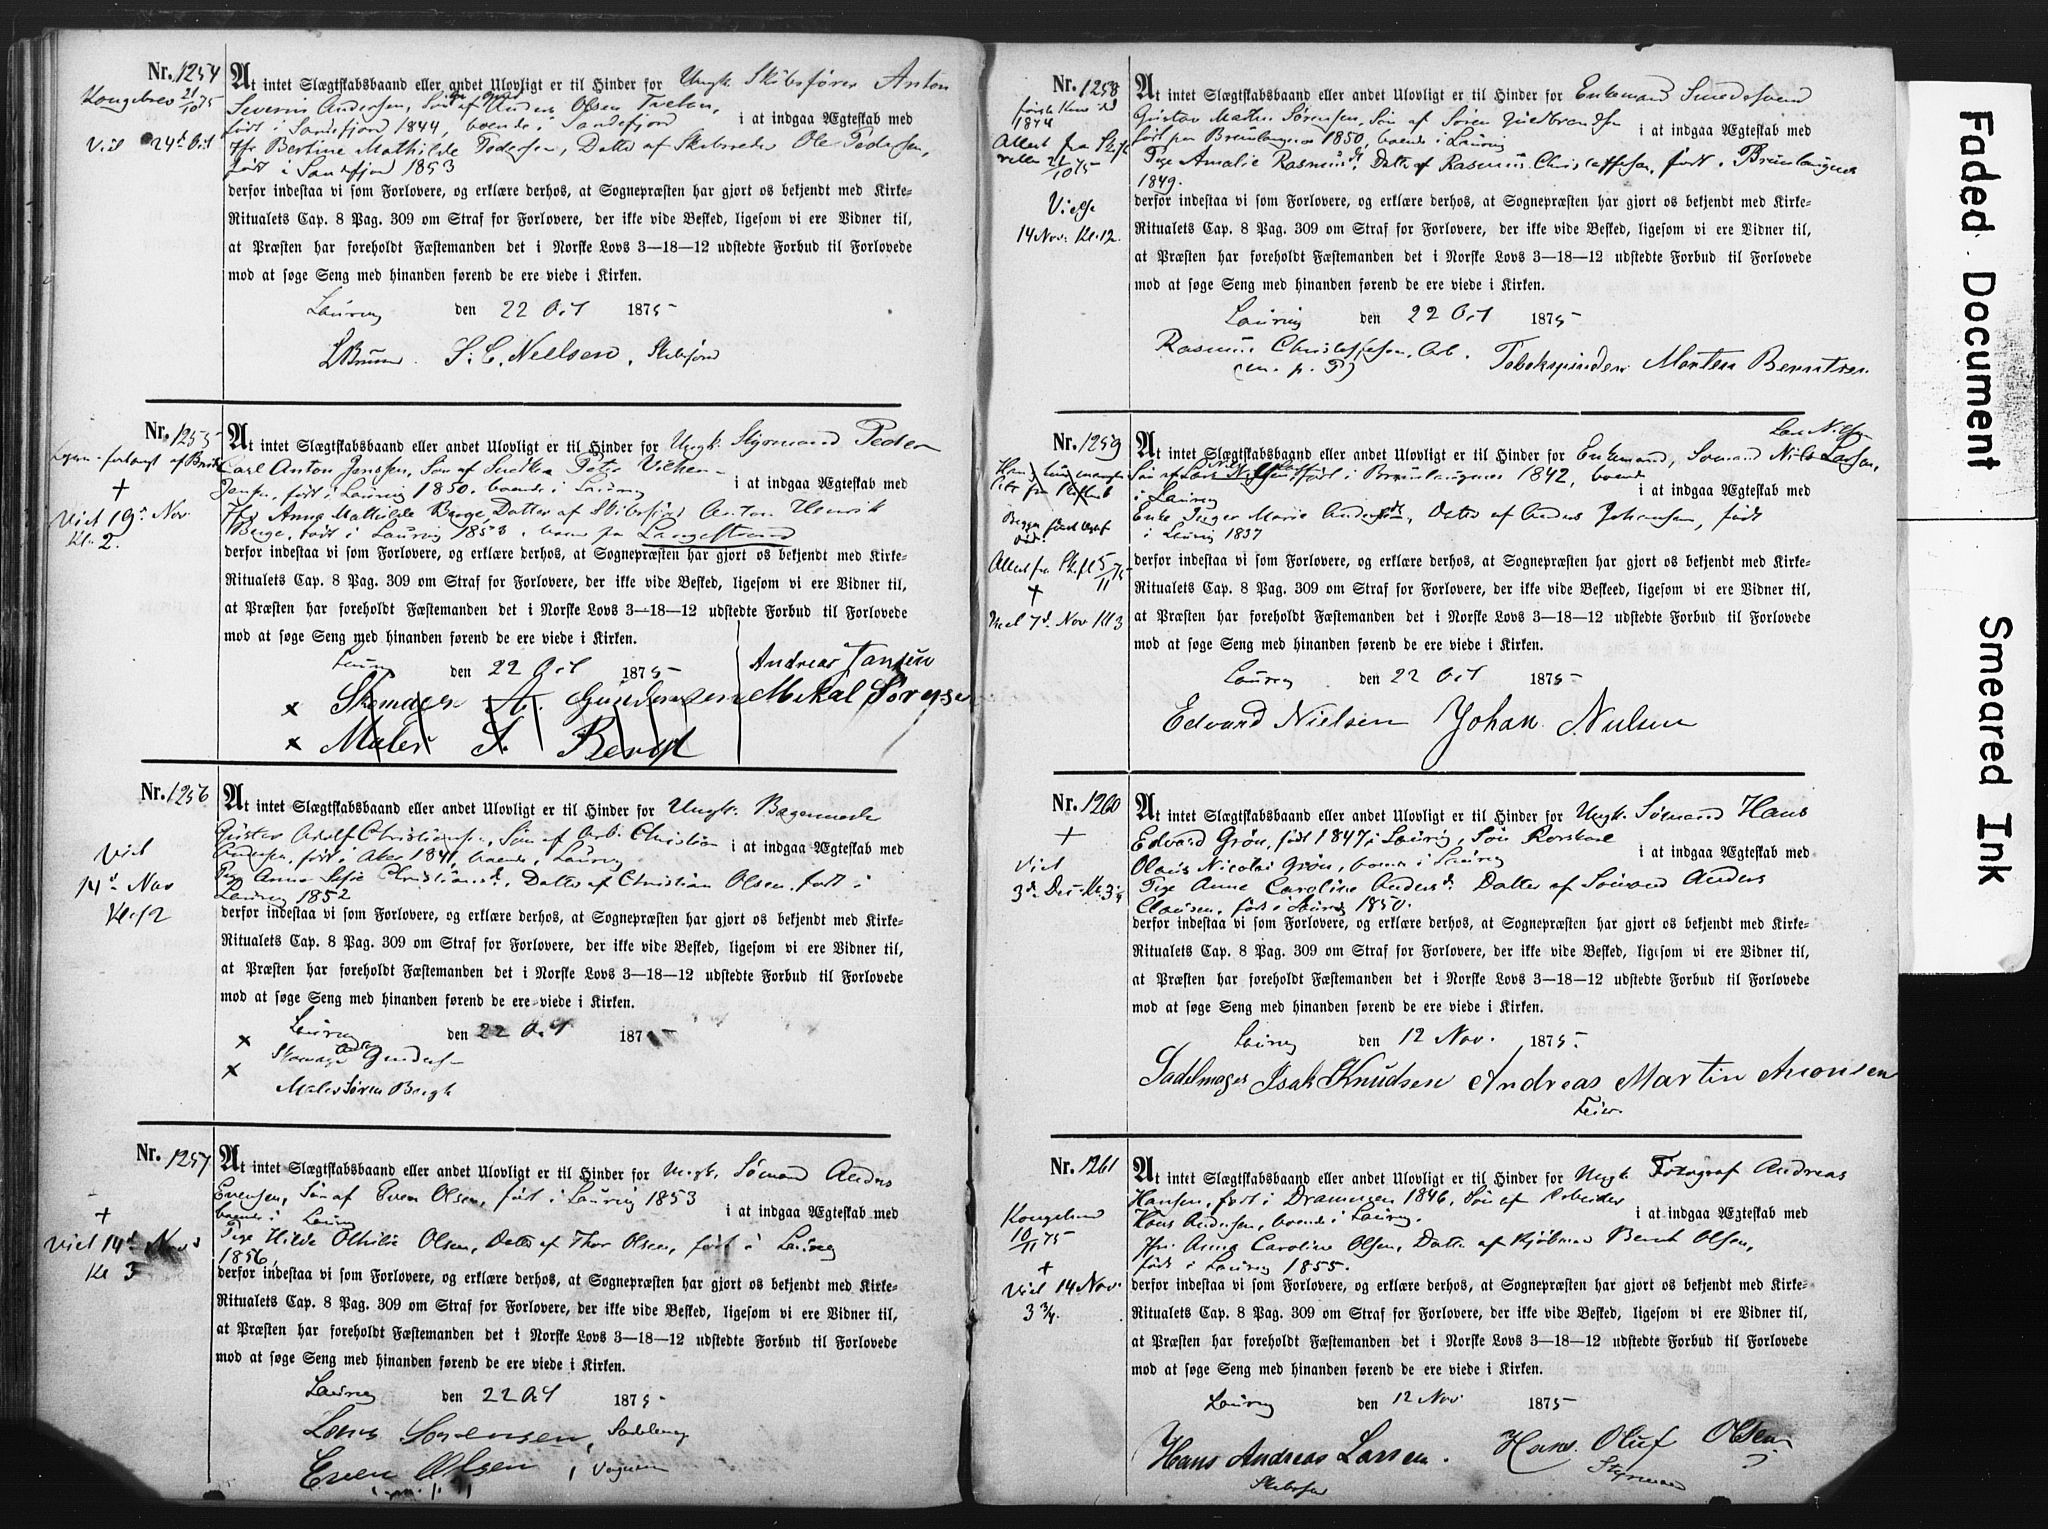 Nr. 1254
Kongebrev 21/10 75
Viet 24de Oct
At intet Slægtskabsbaand eller andet Ulovligt er til Hinder for Ungk. Skibsfører Anton
Severin Andersen, Søn af Anders Olsen
født i Sandefjord 1844, boende i Sandefjord i at indgaa Ægteskab med
Jfr Bertine Mathilde Pedersen, Datter af Skibsreder Ole Pedersen,
født i Sandefjord 1853
derfor indestaa vi som Forlovere, og erklære derhos, at Sognepræsten har gjort os bekjendt med Kirke-
Ritualets Cap. 8 Pag. 309 om Straf for Forlovere, der ikke vide Besked, ligesom vi ere Vidner til,
at Præsten har foreholdt Fæstemanden det i Norske Lovs 3—18—12 udstedte Forbud til Forlovede
mod at søge Seng med hinanden førend de ere viede i Kirken.
Laurvig den 22 Oct 1875
S. C. Nielsen, Skibsfører
Nr. 1255
+
Viet 19de Nov
Kl. 2.
At intet Slægtskabsbaand eller andet Ulovligt er til Hinder for Ungk. Styrmand Peder
Carl Anton Jensen, Søn af Peter
Jensen, født i Laurvig 1850, boende i Laurvig i at indgaa Ægteskab med
Jfr Anna Mathilde Berge, Datter af Skibsfører Anton Henrik
Berge, født i Laurvig 1853, boende paa Langestrand
derfor indestaa vi som Forlovere, og erklære derhos, at Sognepræsten har gjort os bekjendt med Kirke-
Ritualets Cap. 8 Pag. 309 om Straf for Forlovere, der ikke vide Besked, ligesom vi ere Vidner til,
at Præsten har foreholdt Fæstemanden det i Norske Lovs 3—18—12 udstedte Forbud til Forlovede
mod at søge Seng med hinanden førend de ere viede i Kirken.
Laurvig den 22 Oct 1875
Andreas Jansen
x Skomager A. Gundersen Mikal Sørensen
x Maler S. Bergh
Nr. 1256
Viet
14de Nov
Kl. 12
At intet Slægtskabsbaand eller andet Ulovligt er til Hinder for Ungk. Bagermester
Gustav Adolf Christiansen, Søn af Arb. Christian
Andersen, født i Aker 1841, boende i Laurvig i at indgaa Ægteskab med
Pige Anna Sofie Christiansd., Datter af Christian Olsen, født i
Laurvig 1852
derfor indestaa vi som Forlovere, og erklære derhos, at Sognepræsten har gjort os bekjendt med Kirke-
Ritualets Cap. 8 Pag. 309 om Straf for Forlovere, der ikke vide Besked, ligesom vi ere Vidner til,
at Præsten har foreholdt Fæstemanden det i Norske Lovs 3—18—12 udstedte Forbud til Forlovede
mod at søge Seng med hinanden førend de ere viede i Kirken.
x Laurvig den 22 Oct 1875
x Skomager Gundersen
Maler Søren Bergh
Nr. 1257
+
Viet 14de Nov
Kl 3
At intet Slægtskabsbaand eller andet Ulovligt er til Hinder for Ungk. Sømand Anders
Evensen, Søn af Even Olsen, født i Laurvig 1853
boende i Laurvig i at indgaa Ægteskab med
Pige Hilde Othilie Olsen, Datter af Thor Olsen, født i Laurvig
1856,
derfor indestaa vi som Forlovere, og erklære derhos, at Sognepræsten har gjort os bekjendt med Kirke-
Ritualets Cap. 8 Pag. 309 om Straf for Forlovere, der ikke vide Besked, ligesom vi ere Vidner til,
at Præsten har foreholdt Fæstemanden det i Norske Lovs 3—18—12 udstedte Forbud til Forlovede
mod at søge Seng med hinanden førend de ere viede i Kirken.
Laurvig den 22 Oct 1875
Lars Sørensen,
Even Olsen,
Nr. 1258
1874
Attest fra Skifte
retten 21/10 75
Vielse
14 Nov. Kl. 12.
At intet Slægtskabsbaand eller andet Ulovligt er til Hinder for Enkemand Smedesvend
Gustav Mathis Sørensen, Søn af Søren
født paa Brunlanges 1850, boende i Laurvig i at indgaa Ægteskab med
Pige Amalie Rasmusd. Datter af Rasmus Christoffersen, født i Brunlangnes
1849.
derfor indestaa vi som Forlovere, og erklære derhos, at Sognepræsten har gjort os bekjendt med Kirke-
Ritualets Cap. 8 Pag. 309 om Straf for Forlovere, der ikke vide Besked, ligesom vi ere Vidner til,
at Præsten har foreholdt Fæstemanden det i Norske Lovs 3—18—12 udstedte Forbud til Forlovede
mod at søge Seng med hinanden førend de ere viede i Kirken.
Laurvig den 22 Oct 1875
Rasmus Christoffersen, Arb. Tobakspinder Morten Berntsen
(m. p. P)
Nr. 1259
Attest fra Skift 5/11 75
+
Viet 7de Nov Kl 3
Lars Nilsen
At intet Slægtskabsbaand eller andet Ulovligt er til Hinder for Enkemand, Sømand Nils Larsen,
Søn af født i Brunlangnes 1842, boende
i Laurvig i at indgaa Ægteskab med
Enke Inger Marie Andersd., Datter af Anders Johansen, født
i Laurvig 1837
derfor indestaa vi som Forlovere, og erklære derhos, at Sognepræsten har gjort os bekjendt med Kirke-
Ritualets Cap. 8 Pag. 309 om Straf for Forlovere, der ikke vide Besked, ligesom vi ere Vidner til,
at Præsten har foreholdt Fæstemanden det i Norske Lovs 3—18—12 udstedte Forbud til Forlovede
mod at søge Seng med hinanden førend de ere viede i Kirken.
Laurvig den 22 Oct 1875
Edvard Nielsen Johan Nielsen
Nr. 1260
+
Viet
3de Dec. Kl. 3 1/4
At intet Slægtskabsbaand eller andet Ulovligt er til Hinder for Ungk. Sømand Hans
Edvard Grøn, født 1847 i Laurvig, Søn Korskarl
Olaus Nicolai Grøn, boende i Laurvig i at indgaa Ægteskab med
Pige Anne Caroline Andersd. Datter af Sømand Anders
Clausen, født i Laurvig 1850.
derfor indestaa vi som Forlovere, og erklære derhos, at Sognepræsten har gjort os bekjendt med Kirke-
Ritualets Cap. 8 Pag. 309 om Straf for Forlovere, der ikke vide Besked, ligesom vi ere Vidner til,
at Præsten har foreholdt Fæstemanden det i Norske Lovs 3—18—12 udstedte Forbud til Forlovede
mod at søge Seng med hinanden førend de ere viede i Kirken.
Laurvig den 12 Nov. 1875.
Sadelmager Isak Knudsen Andreas Martin Amonsen
Feier
Nr. 1261
Kongebrev
10/11 75
+
Viet 14 Nov.
3 3/4.
At intet Slægtskabsbaand eller andet Ulovligt er til Hinder for Ungk. Fotograf Andreas
Hansen, født i Drammen 1846, Søn af Arbeider
Hans Andersen, boende i Laurvig. i at indgaa Ægteskab med
Jfr. Anna Caroline Olsen, Datter af Kjøbmand Bernt Olsen,
født i Laurvig 1855.
derfor indestaa vi som Forlovere, og erklære derhos, at Sognepræsten har gjort os bekjendt med Kirke-
Ritualets Cap. 8 Pag. 309 om Straf for Forlovere, der ikke vide Besked, ligesom vi ere Vidner til,
at Præsten har foreholdt Fæstemanden det i Norske Lovs 3—18—12 udstedte Forbud til Forlovede
mod at søge Seng med hinanden førend de ere viede i Kirken.
Laurvig den 12 Nov 1875
Hans Andreas Larsen. Hans Oluf Olsen
Skibsfør Styrmand
Faded Document
Smeared Ink